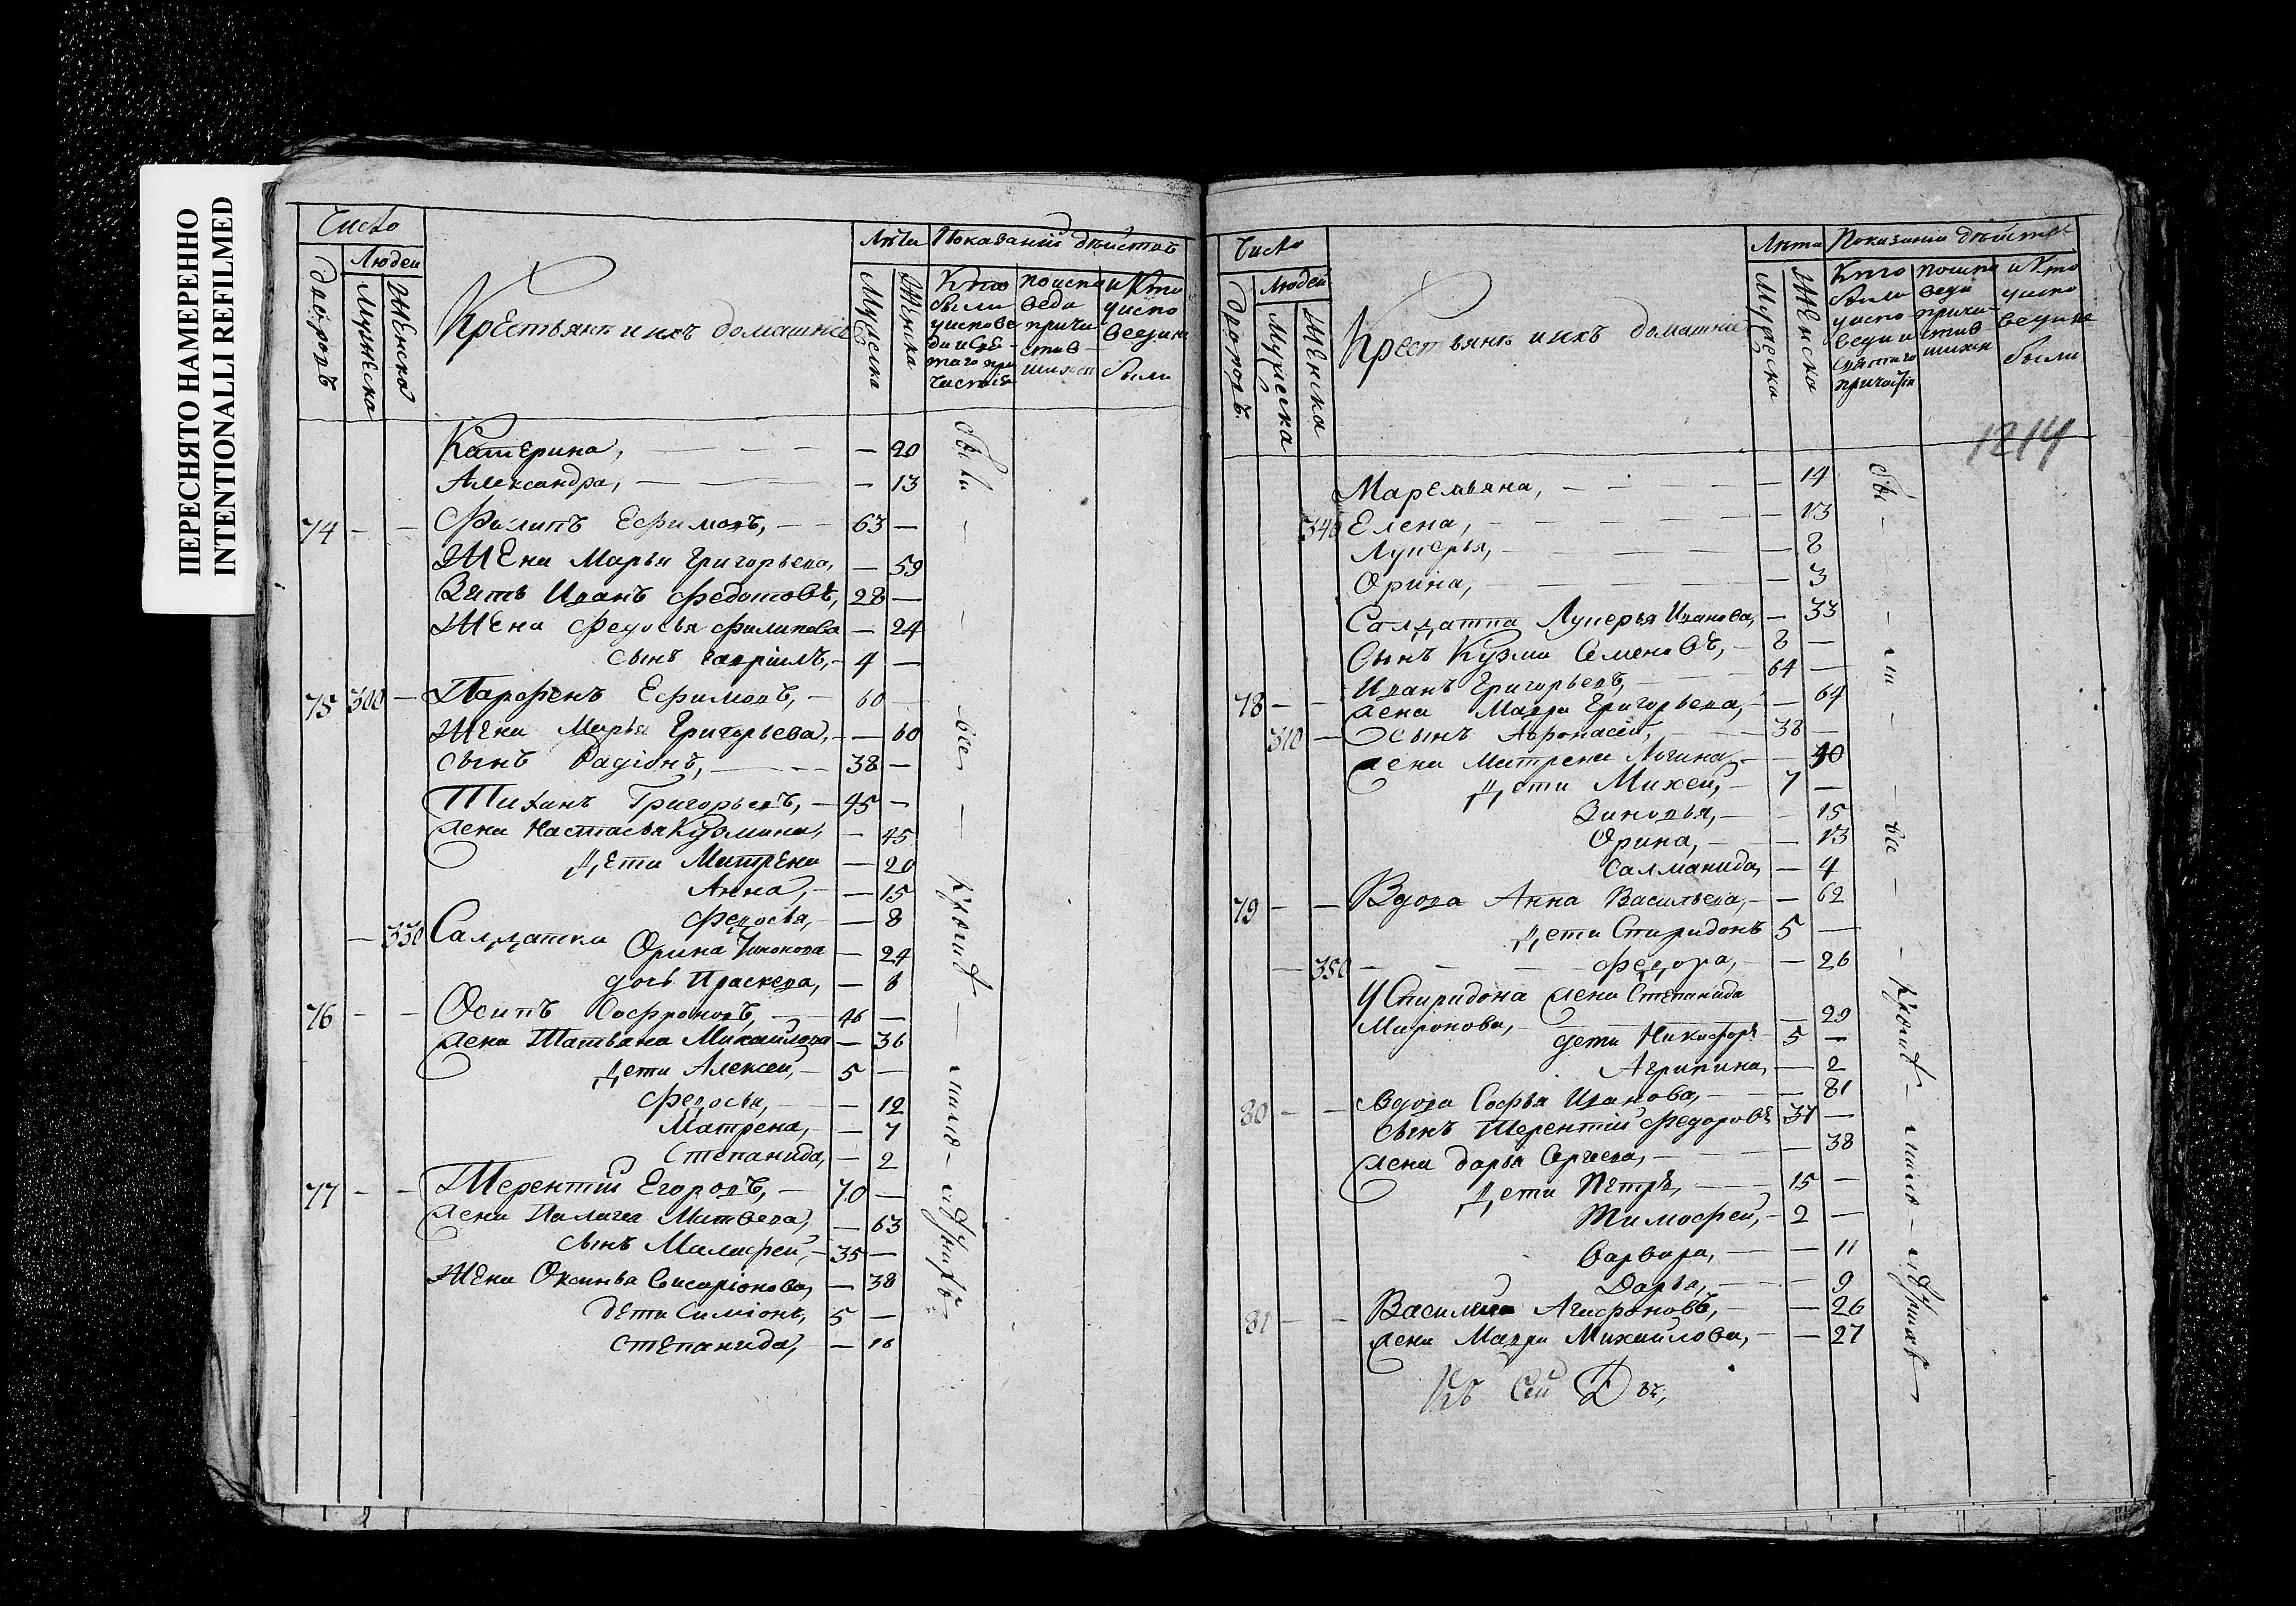 ПЕРЕСНЯТО НАМЕРЕННО
INTENTIONALLI REFILMED
Число
Людей
дворовъ
Мужеска
Женска
Крестьянъ и ихъ домашнiе
Лѣта
Мужеска
Женска
Показанiи дѣйствъ
Кто были
у исповеди и Святаго причастiя
по исповеди причи-
и Кто у исповеди не были
Катерина, — — 20
Александра, — — 13
74 — — Филипъ Ефимовъ, — 63 —
Жена Марья Григорьева, — 59
Зять Иванъ Федотовъ, 28 —
Жена Федосья Филипова — 24
сынъ Гаврiилъ, — 4 —
75 300 — Парфенъ Ефимовъ, — 60 —
Жена Марья Григорьева, — 60
сынъ Радiонъ, — 38 —
Тиханъ Григорьевъ, — 45 —
жена Настасья Кузмина, — 45
Дети Матрена — 20
Анна, — 15
Федосья, — 8
— 330 Салдатка Орина — 24
дочь Праскева, — 6
76 — — Осипъ Софроновъ, — 46 —
жена Татьяна Михаилова — 36
Дети Алексей, — 5 —
Федосья, — 12
Матрена, — 7
Степанида, — 2
77 — — Терентiй Егоровъ, — 70 —
жена Палагея Матвева, — 63
сынъ Малафей, — 35 —
Жена Оксинья Висарiонова, — 38
дети Симiонъ, 5 —
степанида, — 16
были — все — —
Число
Людей
дворовъ
Мужеска
Женска
Крестьянъ и ихъ домашнiе
Лѣта
Мужеска
Женска
Показанiи дѣйствъ
Кто были у исповеди и святаго причастiя
и Кто у исповеди не были
1214
Маремьяна, — — 14
340 Елена, — — 13
Лукерья, — — 8
Орина, — — 3
Салдатка Лукерья Иванова, — 33
Сынъ Кузма Семеновъ, — 8 —
78 — — Иванъ Григорьевъ, — 64 —
жена Мавра Григорьева, — 64
310 — Сынъ Афонасей, — 38 —
жена Матрена Логина, — 40
Дети Михей, — 7 —
Зиновья, — 15
Орина, — 13
Салманида, — 4
79 — — Вдова Анна Васильева, — 62
Дети Спиридонъ 5 —
— 350 — Федора, — 26
У Спиридона жена Степанида
Миронова, — 29
дети Никифоръ 5 —
Агрипина, — 2
80 — — вдова Софья Иванова, — 81
сынъ Терентiй Федоровъ 37 —
жена Дарья Сергиева, — 38
Дети Петръ, — 15 —
Тимофей, — 2 —
Варвара, — 11
Дарья, — 9
81 — — Василiй Агафоновъ, — 26
жена Мавра Михайлова, — 27
бы — ли — все —